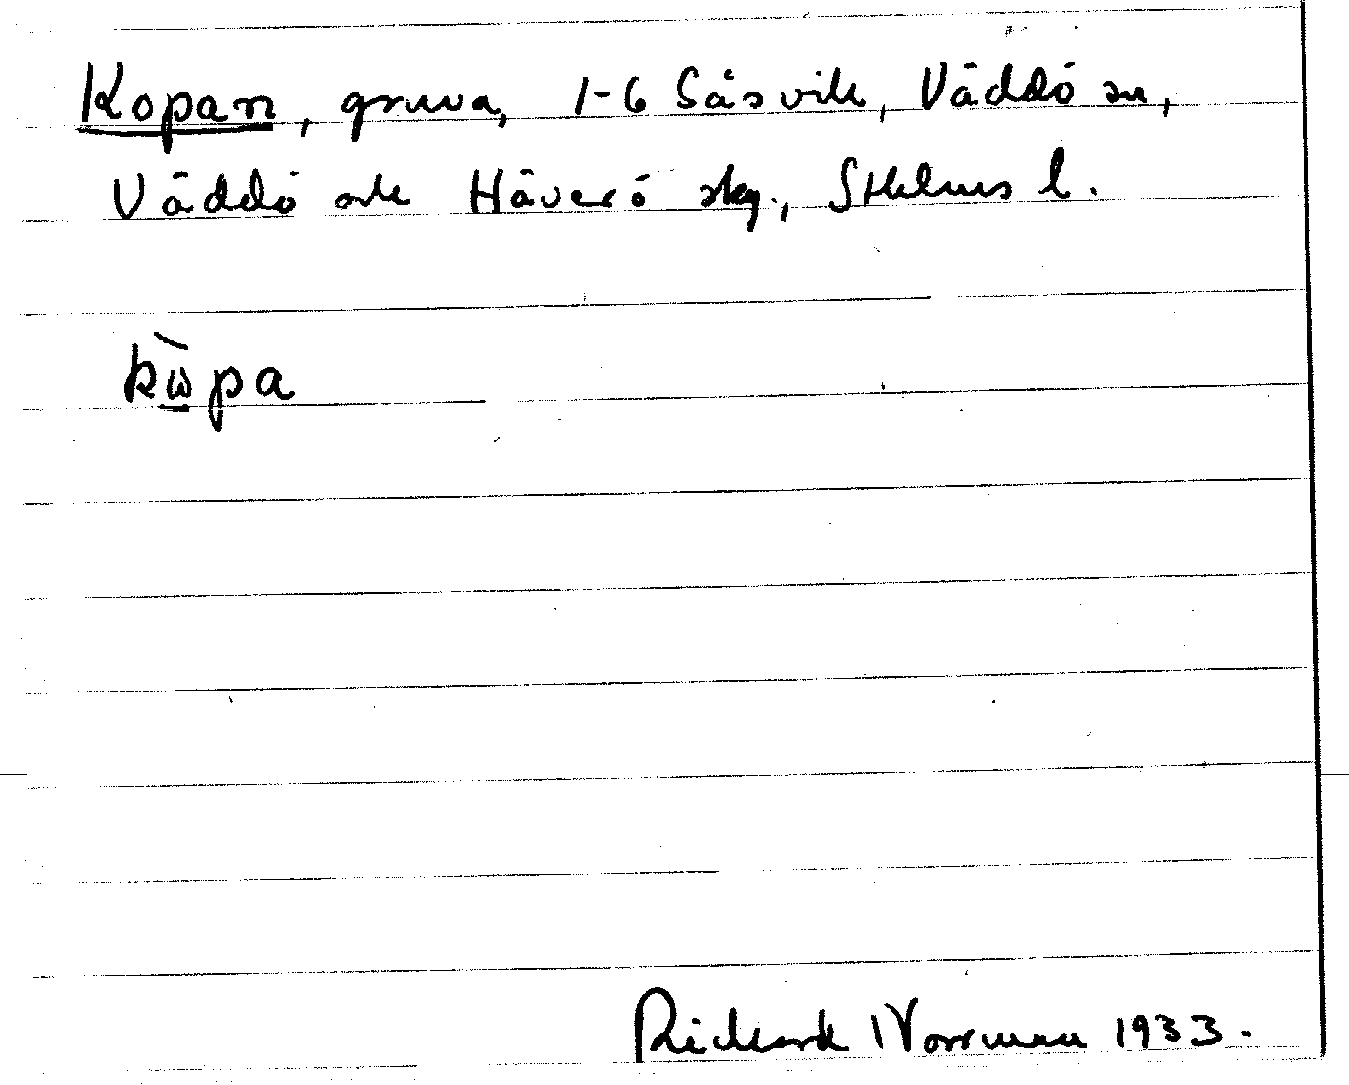 Kopan, gruva, 1-6 Såsvik, Väddö sn,
Väddö och Häverö skg., Sthlms l.
kὼpa
Rickard Norrman 1933.